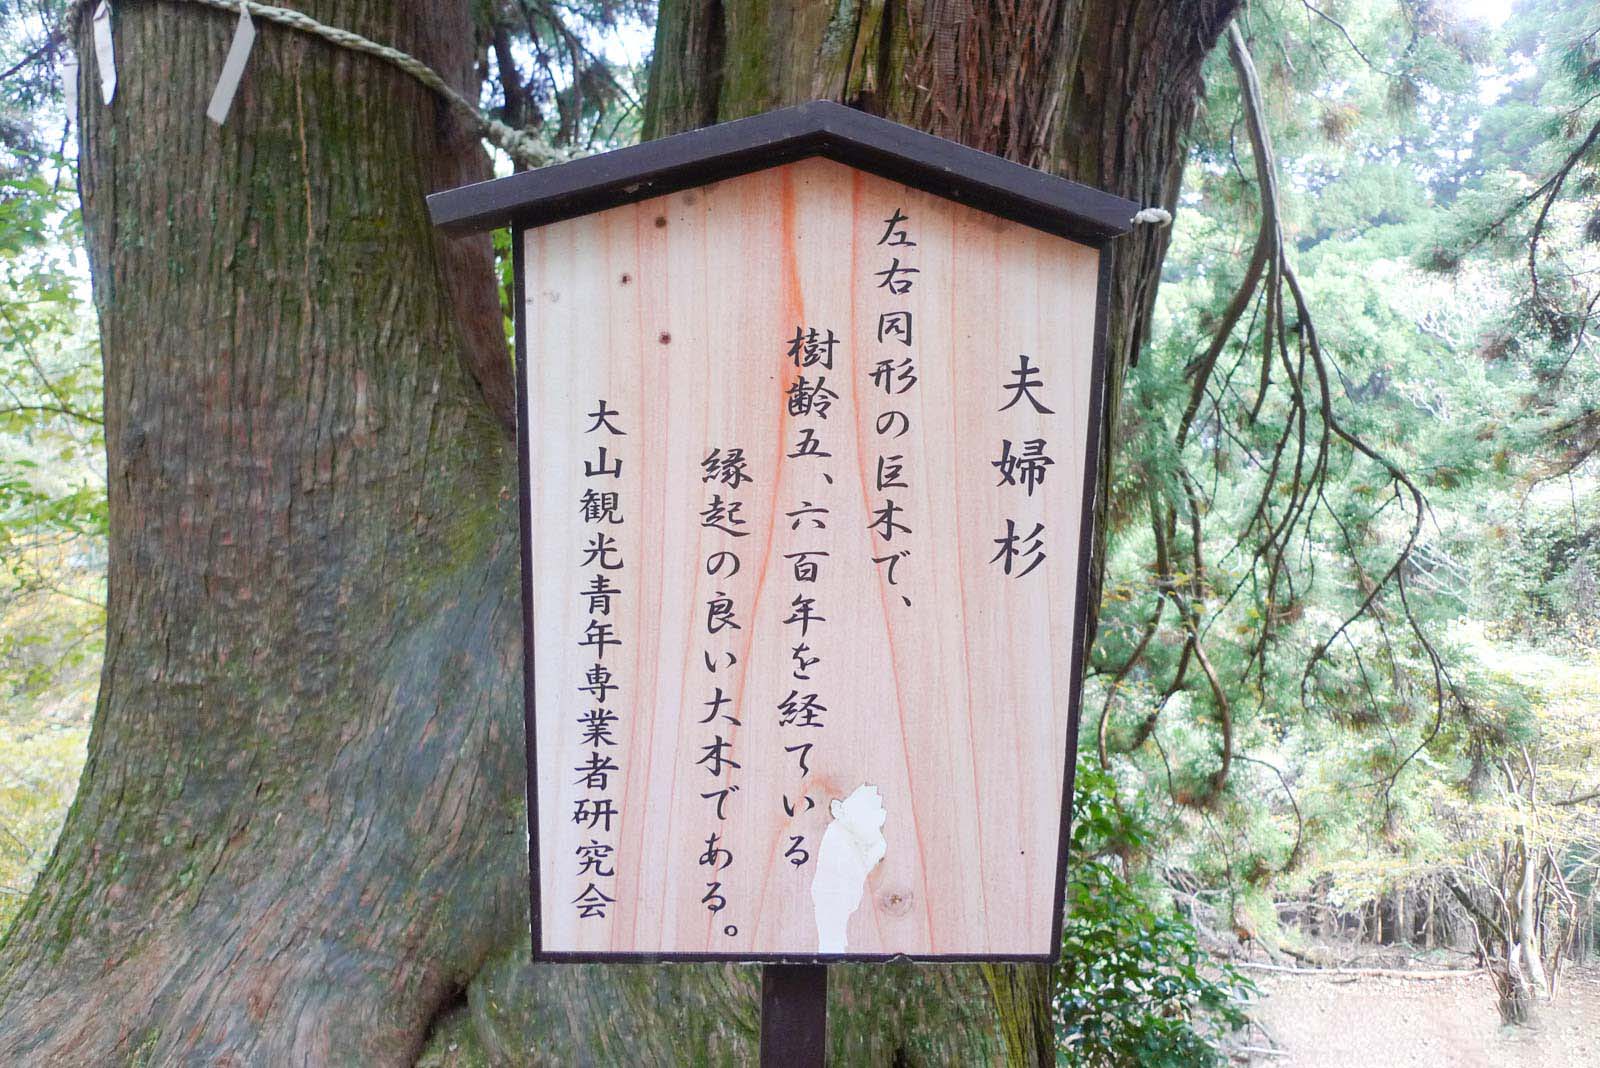 夫婦杉
左右同形の巨木で、
樹齢五、六百年を経ている
縁起の良い大木である。
大山観光青年専業者研究会